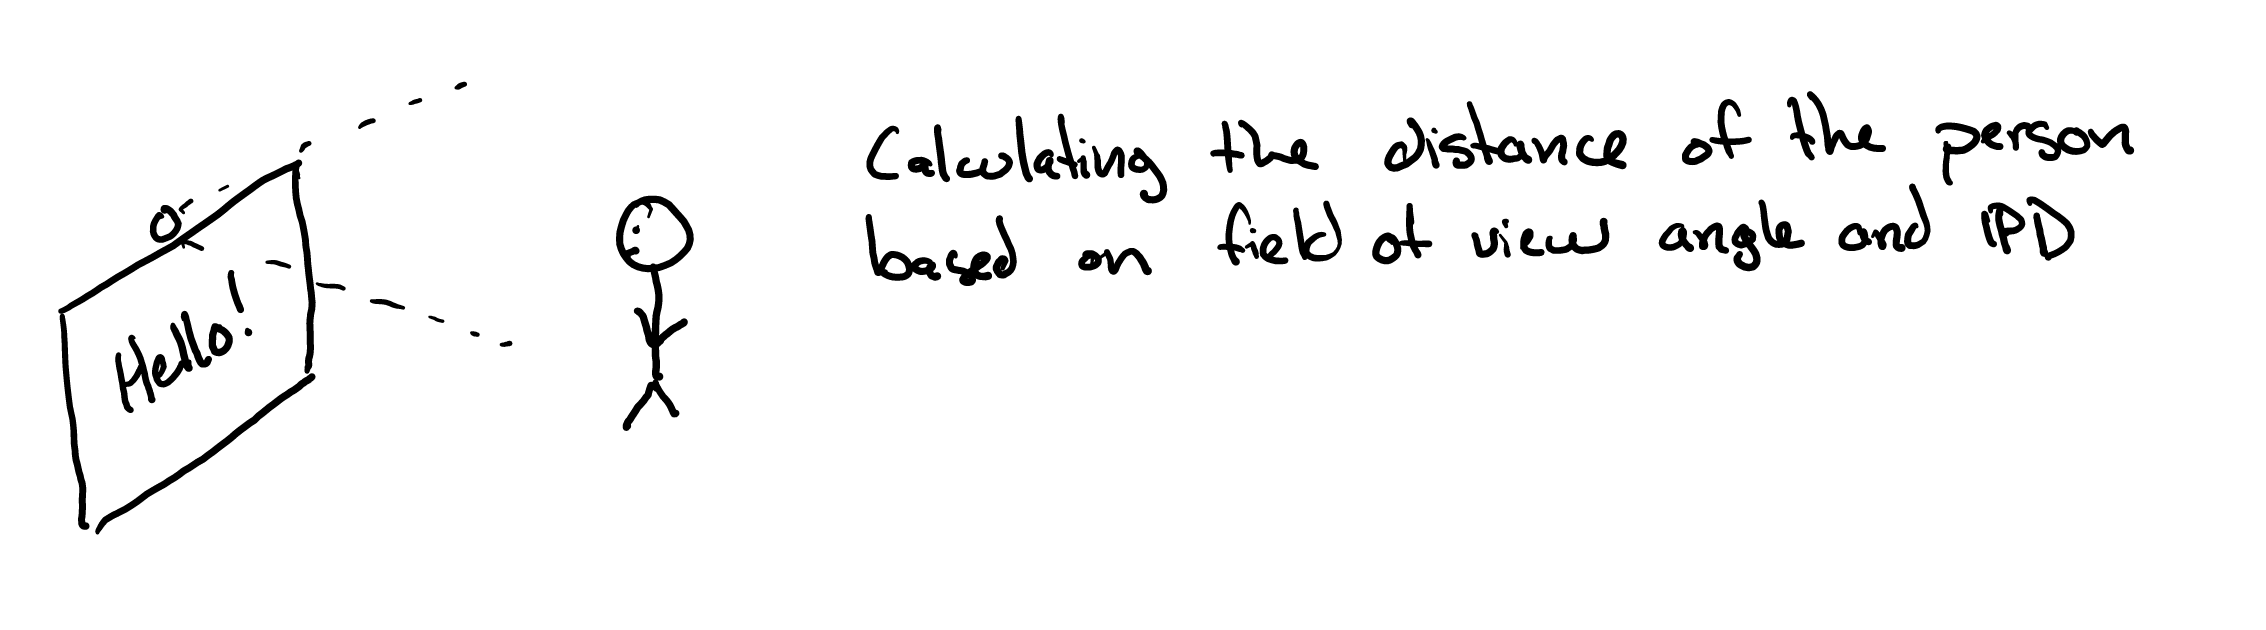 Hello!
Calculating the distance of the person
based on field of view angle and IPD